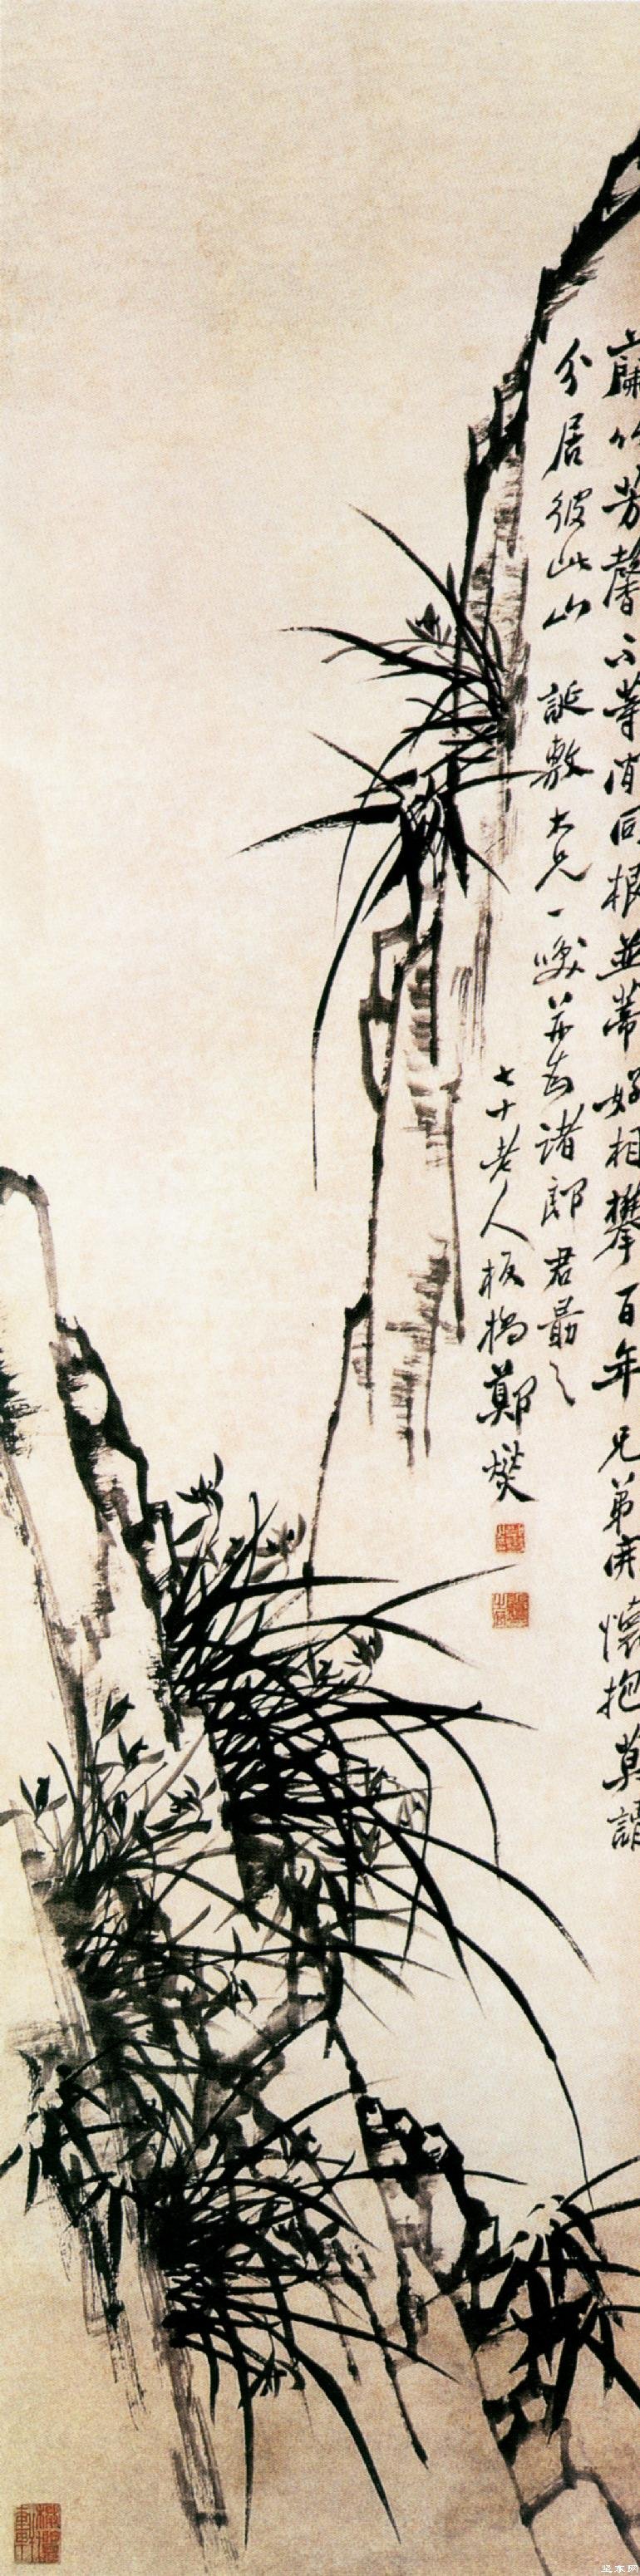 蘭竹芳馨不等閒同根並蒂好相攀百年兄弟開懷抱莫謂
分居彼此山 誕敷大兄一咲并為諸郎君勖之
七十老人板橋鄭燮